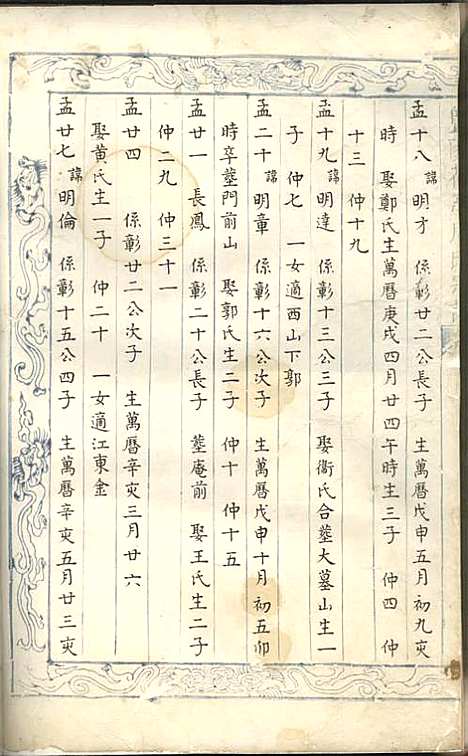 孟十八 諱明才 係彰廿二公長子 生萬曆戊申五月初九亥
時 娶鄭氏生萬曆庚戌四月廿四午時生三子 仲四 仲
十三 仲十九
孟十九 諱明達 係彰十三公三子 娶衞氏合塟大墓山生一
子 仲七 一女適西山下郭
孟二十 諱明章 係彰十六公次子 生萬曆戊申十月初五卯
時卒塟門前山 娶郭氏生二子 仲十 仲十五
孟廿一 長鳳 係彰二十公長子 塟庵前 娶王氏生二子
仲二九 仲三十一
孟廿四 係彰廿二公次子 生萬曆辛亥三月廿六
娶黄氏生一子 仲二十 一女適江東金
孟廿七 諱明倫 係彰十五公四子 生萬曆辛亥五月廿三亥